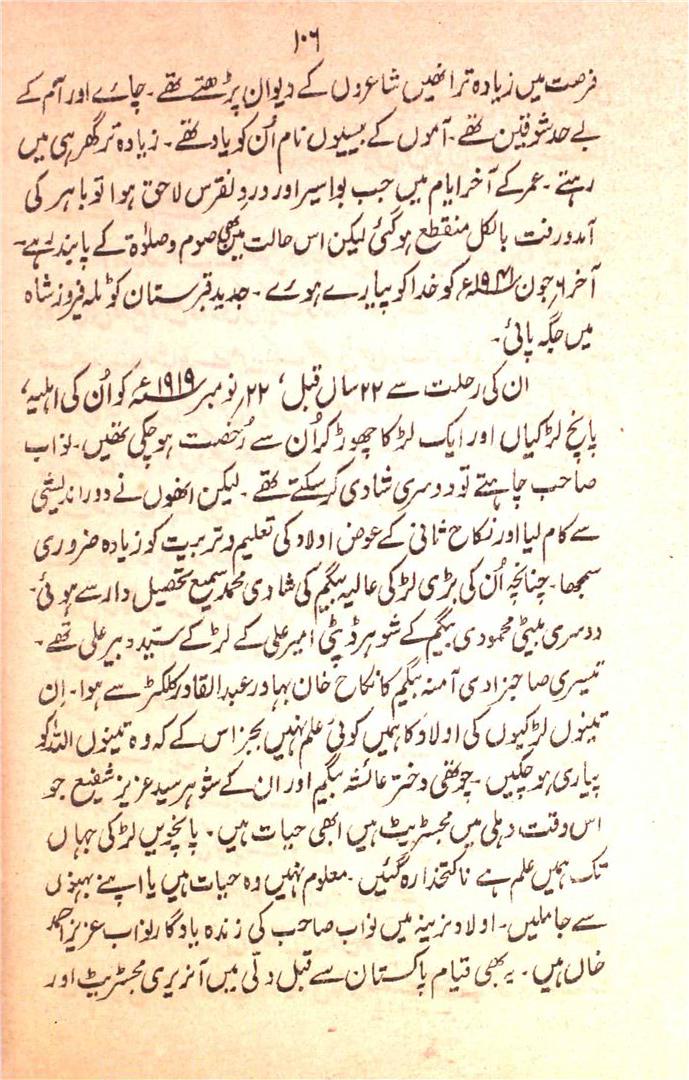 ۱۰۶
فرصت میں زیادہ تر انھیں شاعروں کے دیوان پڑھتے تھے۔ چائے اور آم کے
بے حد شوقین تھے۔ آموں کے بیسیوں نام اُن کو یاد تھے۔ زیادہ تر گھر ہی میں
رہتے۔ عمر کے آخر ایام میں جب بواسیر اور دردِ نقرس لاحق ہوا تو باہر کی
آمدورفت بالکل منقطع ہوگئی لیکن اس حالت میں بھی صوم و صلوٰۃ کے پابند رہے۔
آخر ۶؍جون ۱۹۴۱ء کو خدا کو پیارے ہوئے۔ جدید قبرستان کوٹلہ فیروز شاہ
میں جگہ پائی۔
ان کی رحلت سے ۲۲ سال قبل، ۲۲؍نومبر ۱۹۱۹ء کو اُن کی اہلیہ،
پانچ لڑکیاں اور ایک لڑکا چھوڑ کر اُن سے رُخصت ہوچکی تھیں۔ نواب
صاحب چاہتے تو دوسری شادی کرسکتے تھے۔ لیکن انھوں نے دور اندیشی
سے کام لیا اور نکاح ثانی کے عوض اولاد کی تعلیم و تربیت کو زیادہ ضروری
سمجھا۔ چنانچہ اُن کی بڑی لڑکی عالیہ بیگم کی شادی محمد سمیع تحصیل دار سے ہوئی۔
دوسری بیٹی محمودی بیگم کے شوہر ڈپٹی امیر علی کے لڑکے سیّد دبیر علی تھے۔
تیسری صاحبزادی آمنہ بیگم کا نکاح خان بہادر عبدالقادر کلکٹر سے ہوا۔ اِن
تینوں لڑکیوں کی اولاد کا ہمیں کوئی علم نہیں بجز اس کے کہ وہ تینوں اللہ کو
پیاری ہوچکیں۔ چوتھی دختر عائشہ بیگم اور ان کے شوہر سید عزیز شفیع جو
اس وقت دہلی میں مجسٹریٹ ہیں ابھی حیات ہیں۔ پانچویں لڑکی جہاں
تک ہمیں علم ہے ناکتخدا رہ گئیں۔ معلوم نہیں وہ حیات ہیں یا اپنے بہنوں
سے جا ملیں۔ اولاد نرینہ میں نواب صاحب کی زندہ یادگار نواب عزیز احمد
خاں ہیں۔ یہ بھی قیام پاکستان سے قبل دلّی میں آنریری مجسٹریٹ اور